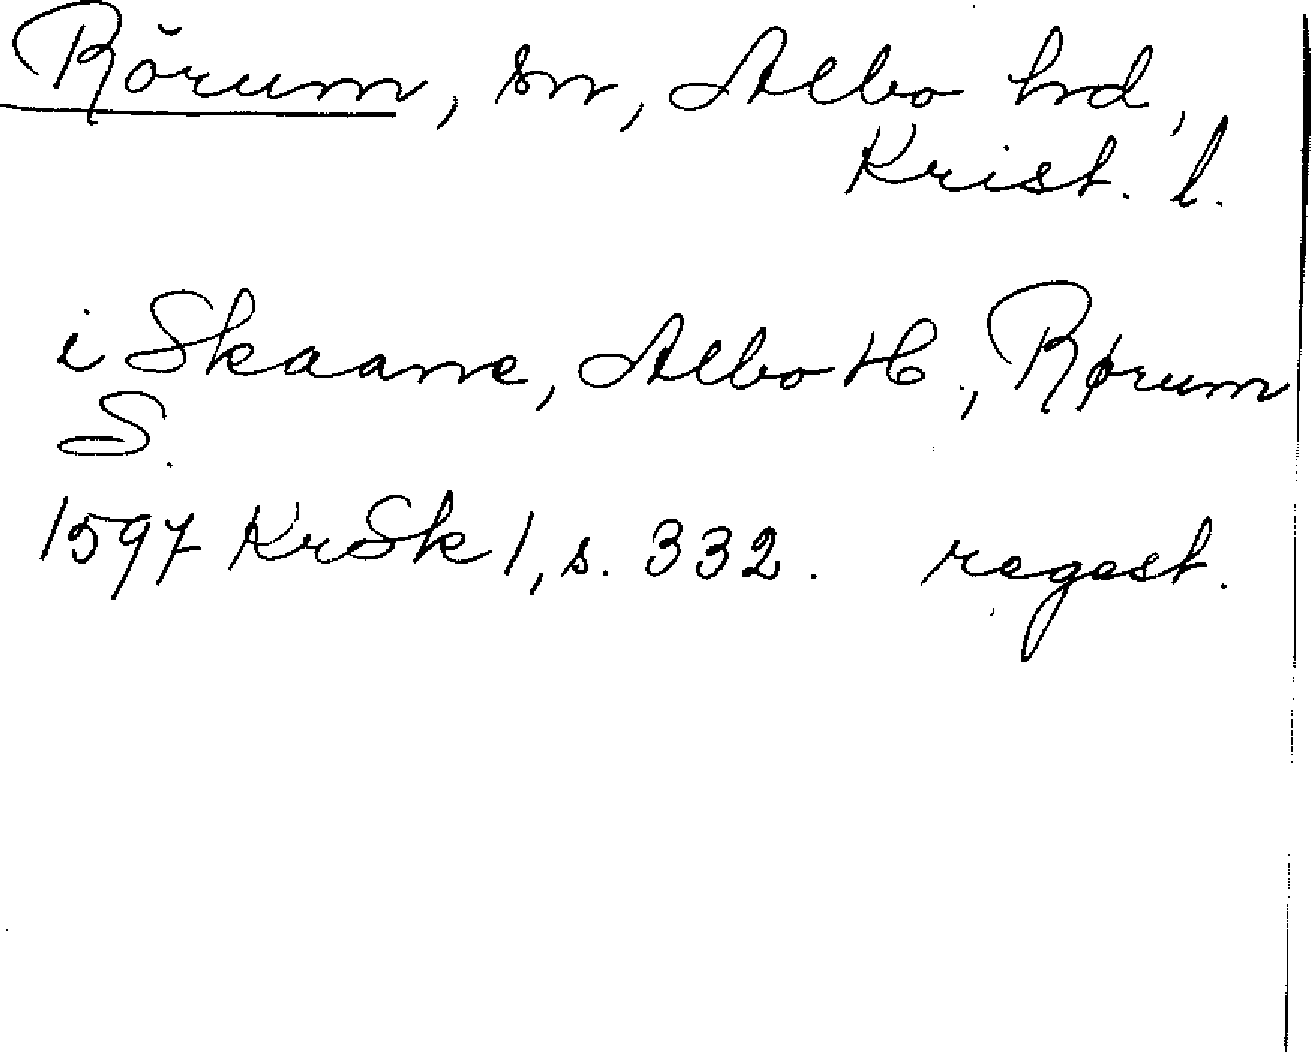 Rörum, sn, Albo hd,
Krist. l.
i Skaane, Albo H., Rørum
S.
1597 KrSk 1, s. 332. regest.